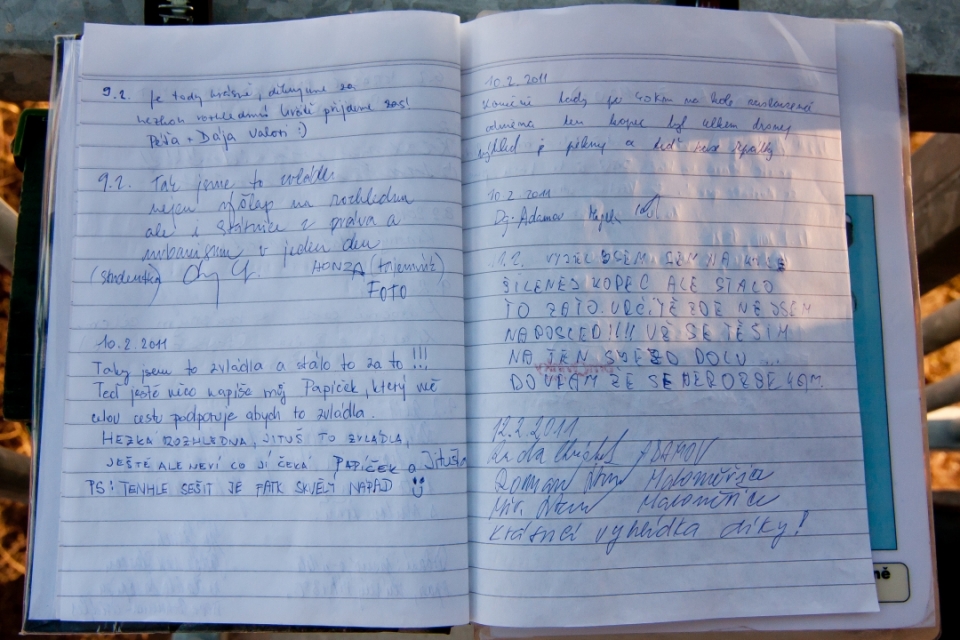 9.2. Je tady krásně, děkujeme za
hezkou rozhlednu! Určitě přijdeme zas!
Péťa + Dája Vaňovi :)
9.2. Tak jsme to zvládli
nejen výšlap na rozhlednu
ale i státnice z práva a
urbanismu v jeden den
(studentka) HONZA (tajemník)
FOTO
10.2.2011
Taky jsem to zvládla a stálo to za to!!!
Teď ještě něco napíše můj Papíček, který mě
celou cestu podporuje abych to zvládla.
HEZKÁ ROZHLEDNA, JITUŠ TO ZVLÁDLA,
JEŠTĚ ALE NEVÍ CO JÍ ČEKÁ PAPÍČEK a Jituška
PS: TENHLE SEŠIT JE FAKT SKVĚLÝ NÁPAD
10.2.2011
Konečně tady po 40km na kole
odměna ten kopec byl celkem drsnej
výhled je pěkný a teď zase zpátky.
10.2.2011
Adamov
VYJEL JSEM SEM NA
ŠÍLENEJ KOPEC ALE STÁLO
TO ZATO. URČITĚ ZDE NEJSEM
NAPOSLED!!!! UŽ SE TĚSIM
NA TEN DOLU ...
DOUFAM ŽE SE
12.2.2011
ADAMOV
Roman Maloměřice
Maloměřice
Krásná vyhlídka díky!
ně